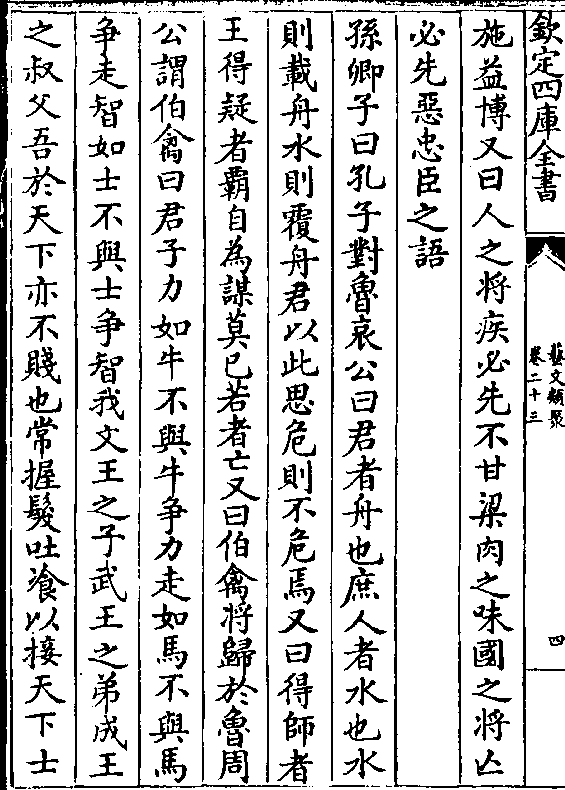 欽定四庫全書
藝文類聚
卷二十三
四
施益博又曰人之将疾必先不甘梁肉之味國之将亡
必先惡忠臣之語
孫卿子曰孔子對魯哀公曰君者舟也庶人者水也水
則載舟水則覆舟君以此思危則不危焉又曰得師者
王得疑者霸自為謀莫已若者亡又曰伯禽将歸於魯周
公謂伯禽曰君子力如牛不與牛争力走如馬不與馬
争走智如士不與士争智我文王之子武王之弟成王
之叔父吾於天下亦不賤也常握髮吐飡以接天下士